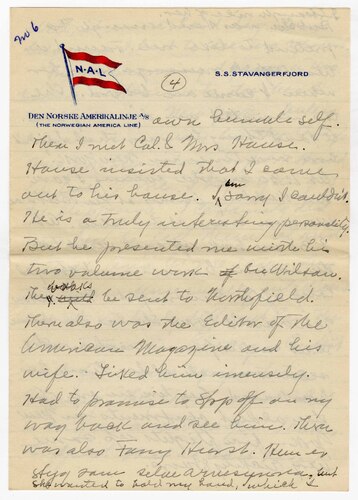 No 6
N·A·L
4
S.S. STAVANGERFJORD
DEN NORSKE AMERIKALINJE A/S
(THE NORWEGIAN AMERICA LINE)
own humble self.
Then I met Col. & Mrs House.
House insisted that I come
out to his house. I am sorry I couldn't.
He is a truly interesting personality.
But he presented me with his
two volume work on Wilson.
The books will be sent to Northfield.
Then also was the Editor of the
American Magazine and his
wife. Liked him immensely.
Had to promise to stop off on my
way back and see him. There
was also Fany Hurst. Hun er
stygg som selve but
she wanted to hold my hand, which I